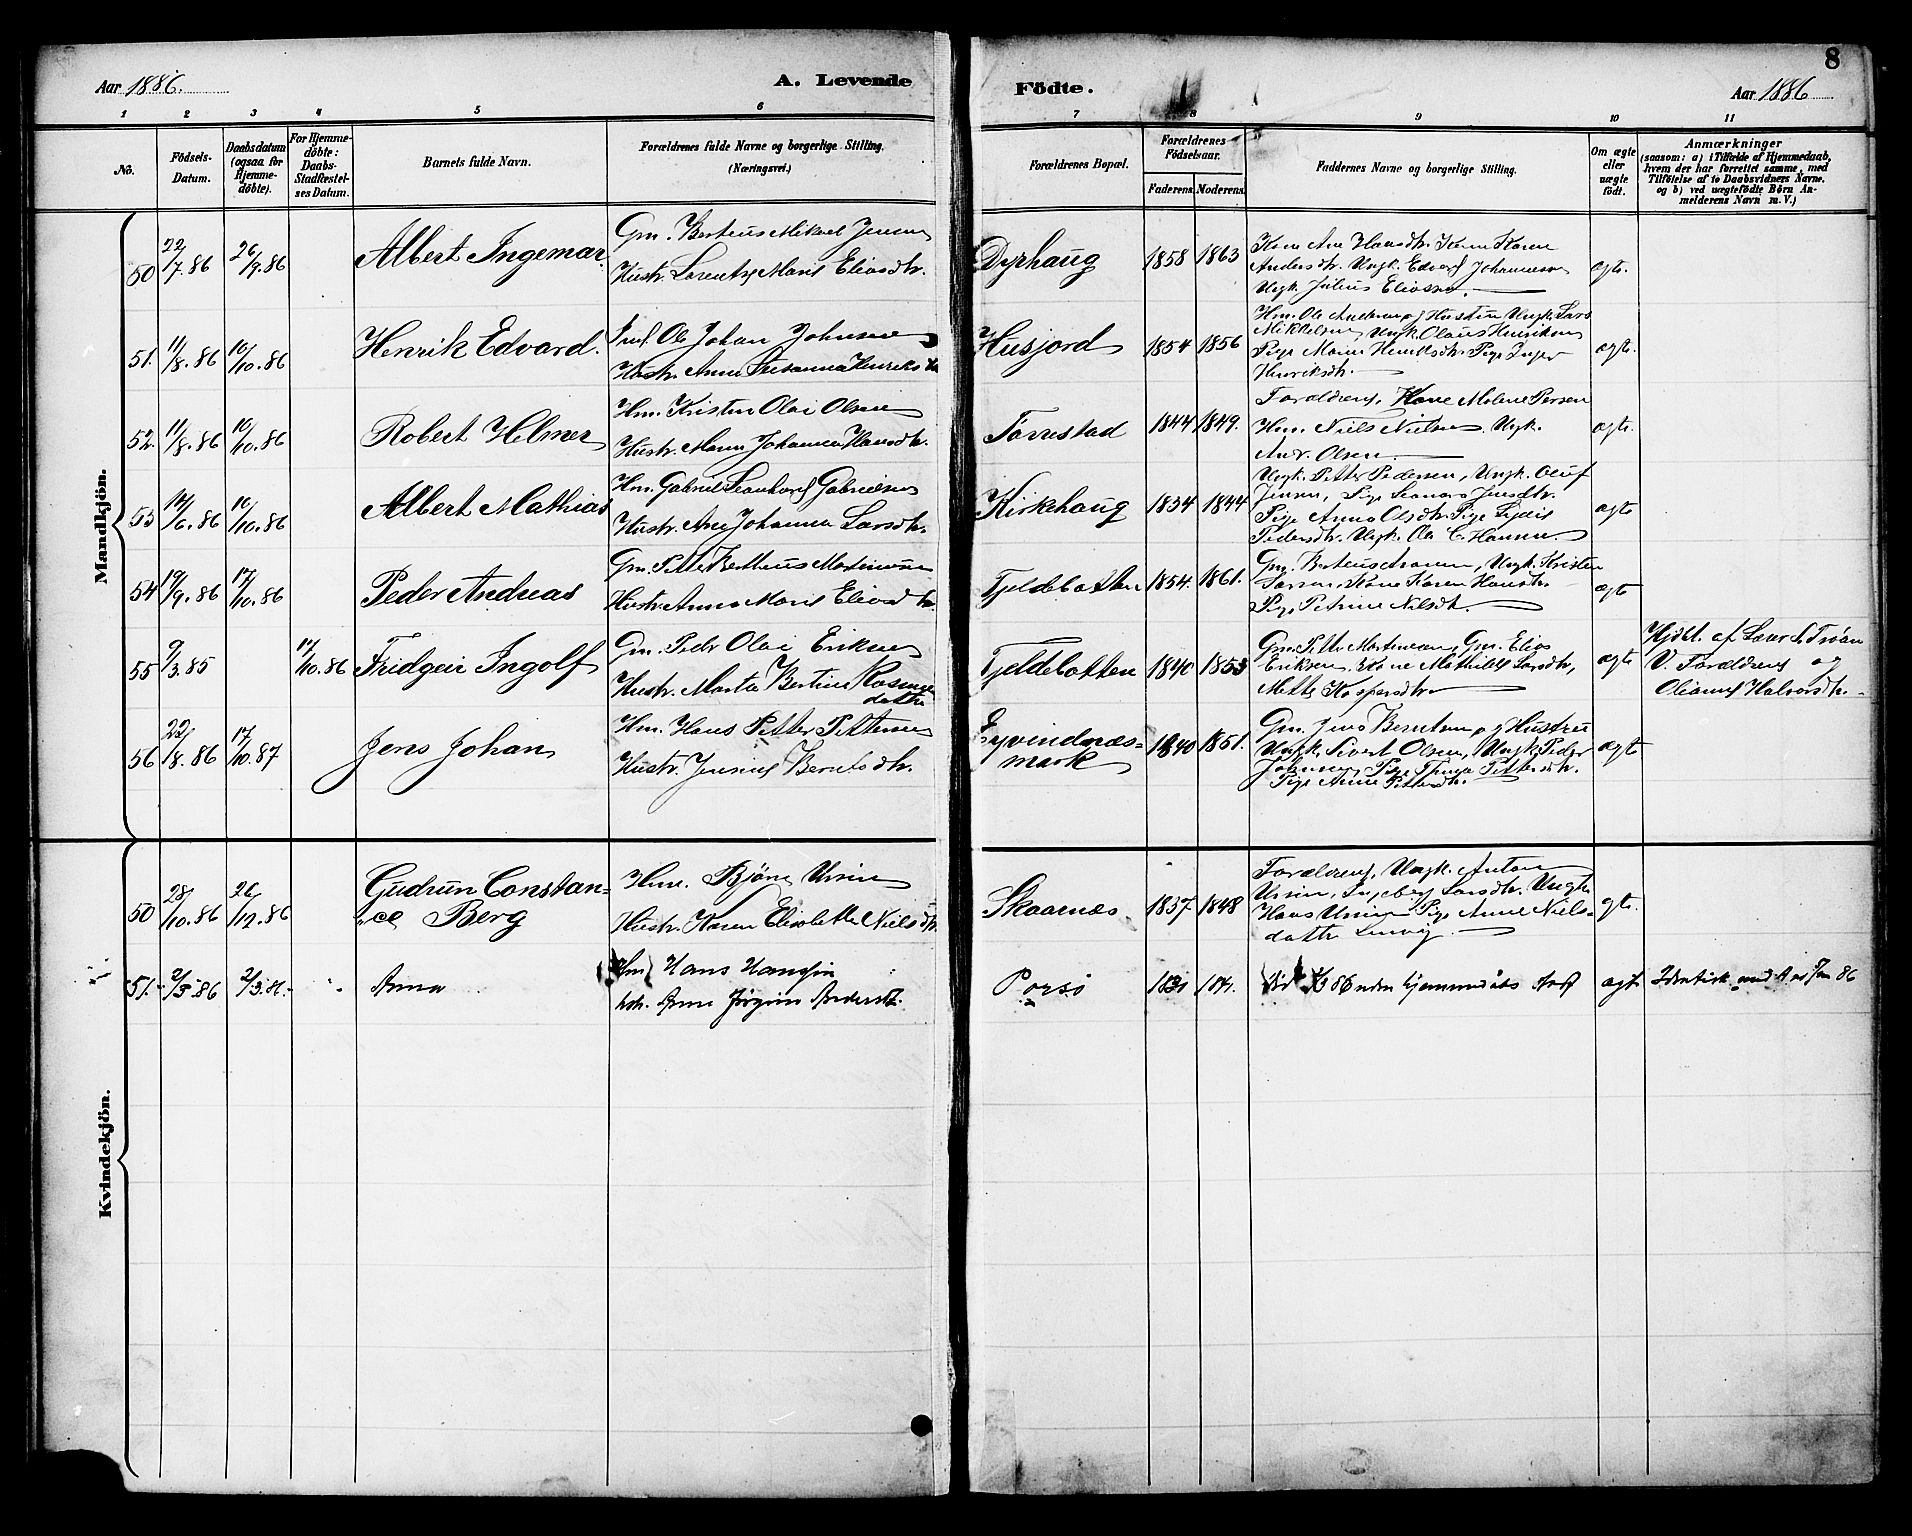 8
Aar 1886.
A. Levende
Födte.
Aar 1886
1 2 3 4 5 6 7 8 9 10 11
No.
Födsels-Datum.
Daabsdatum (ogsaa for Hjemmedöbte).
For Hjemmedöbte: Daabs-Stadfæstelses Datum.
Barnets fulde Navn.
Forældrenes fulde Navne og borgerlige Stilling.
(Næringsvei.)
Forældrenes Bopæl.
Forældrenes Födselsaar.
Faderens. Moderens.
Faddernes Navne og borgerlige Stilling.
Om ægte eller uægte födt.
Anmærkninger
(saasom: a) i Tilfælde af Hjemmedaab, hvem der har forrettet samme, med Tilföielse af to Daabsvidners Navne, og b) ved uægtefödte Börn Anmelderens Navn m. V.)
Mandkjön.
50 22/7.86 26/9.86 Albert Ingemar.
Gm. Bertheus Mikael Jensen
Hustr. Lorentze Marie Eliasdtr.
Dyrhaug 1858 1863
Kone Ane Hansdtr. Kone Karen
Andersdtr. Ungk. Edvard Johannesen
Ungk. Julius Eliassen.
ægte.
51. 11/8.86 10/10.86 Henrik Edvard.
Ole Johan Johnsen
Hustr. Anne Susanna Henriksdtr
Husjord 1854 1856
Hm. Ole Andersen og Hustru Ungk. Lars
Mikkelsen, Ungk. Olaus Henriksen
Pige Maren Henriksdtr. Pige Inger
Henriksdtr.
ægte.
52. 11/8.86 10/10.86 Robert Helmer
Hm. Kristen Olai Olsen
Hustr. Maren Johanna Hansdtr.
Tovrestad 1844 1849.
Forældrene, Kone Milene Persen
Hm. Niels Nielsen, Ungk.
Andr. Olsen.
ægte.
53 14/6.86 10/10.86 Albert Mathias
Hm. Gabriel Leonhard Gabrielsen
Hustr. Ane Johanna Larsdtr.
Kirkehaug 1834 1844
Ungk. Petter Pedersen, Ungk. Oluf
Jensen, Pige Leonora Jensdtr.
Pige Anna Olsdtr. Pige Lydie
Pedersdtr. Ungk. Ole C. Hansen.
ægte
54 19/9.86 17/10.86 Peder Andreas
Gm. Petter Bertheus Martinusen
Hustr. Anna Marie Eliasdtr.
Tjeldebotten 1854. 1861.
Gm. Bertheus Aronsen, Ungk. Kristen
Larsen, Kone Karen Hansdtr.
Pige Petrine Nilsdtr.
ægte
55 9/3.85 17/10.86 Fridgeir Ingolf
Gm. Peder Olai Eriksen
Hustr. Marta Bertine Rasmus
datter
Tjeldebotten 1840 1853
Gm. Petter Martinusen, Gm. Elias
Eriksen, Kone Mathilde Larsdtr,
Mette Kaspersdtr
ægte
Hjdbt. af Laur. S. Troan
V. Forældrene og
Oleanna Halvorsdtr.
56 22/8.86 17/10.87 Jens Johan
Hm. Hans Petter Pettersen
Hustr. Jensine Berntsdtr.
Eyvindnæs-
mark
1840 1851.
Gm. Jens Berntsen og Hustru
Ungk. Sivert Olsen, Ungk. Peder
Johnsen, Pige Thrina Pettersdtr.
Pige Anne Pettersdtr.
ægte
Kvindekjön.
50 28/10.86 26/12.86 Gudrun Constan-
ce Berg
Hm. Björn Ursin
Hustr. Karen Elisabeth Nielsdtr.
Skaarnæs 1837. 1848
Forældrene, Ungk. Anton
Ursin, Ingeborg Larsdtr. Ungk.
Hans Ursin Pige Anne Niels-
datter
ægte.
51. 2/3 86 2/3.86 Anna
Hm. Hans Hansen
hstr. Anne Jørgine Andersdtr.
Porsø
ægte Identisk med
86